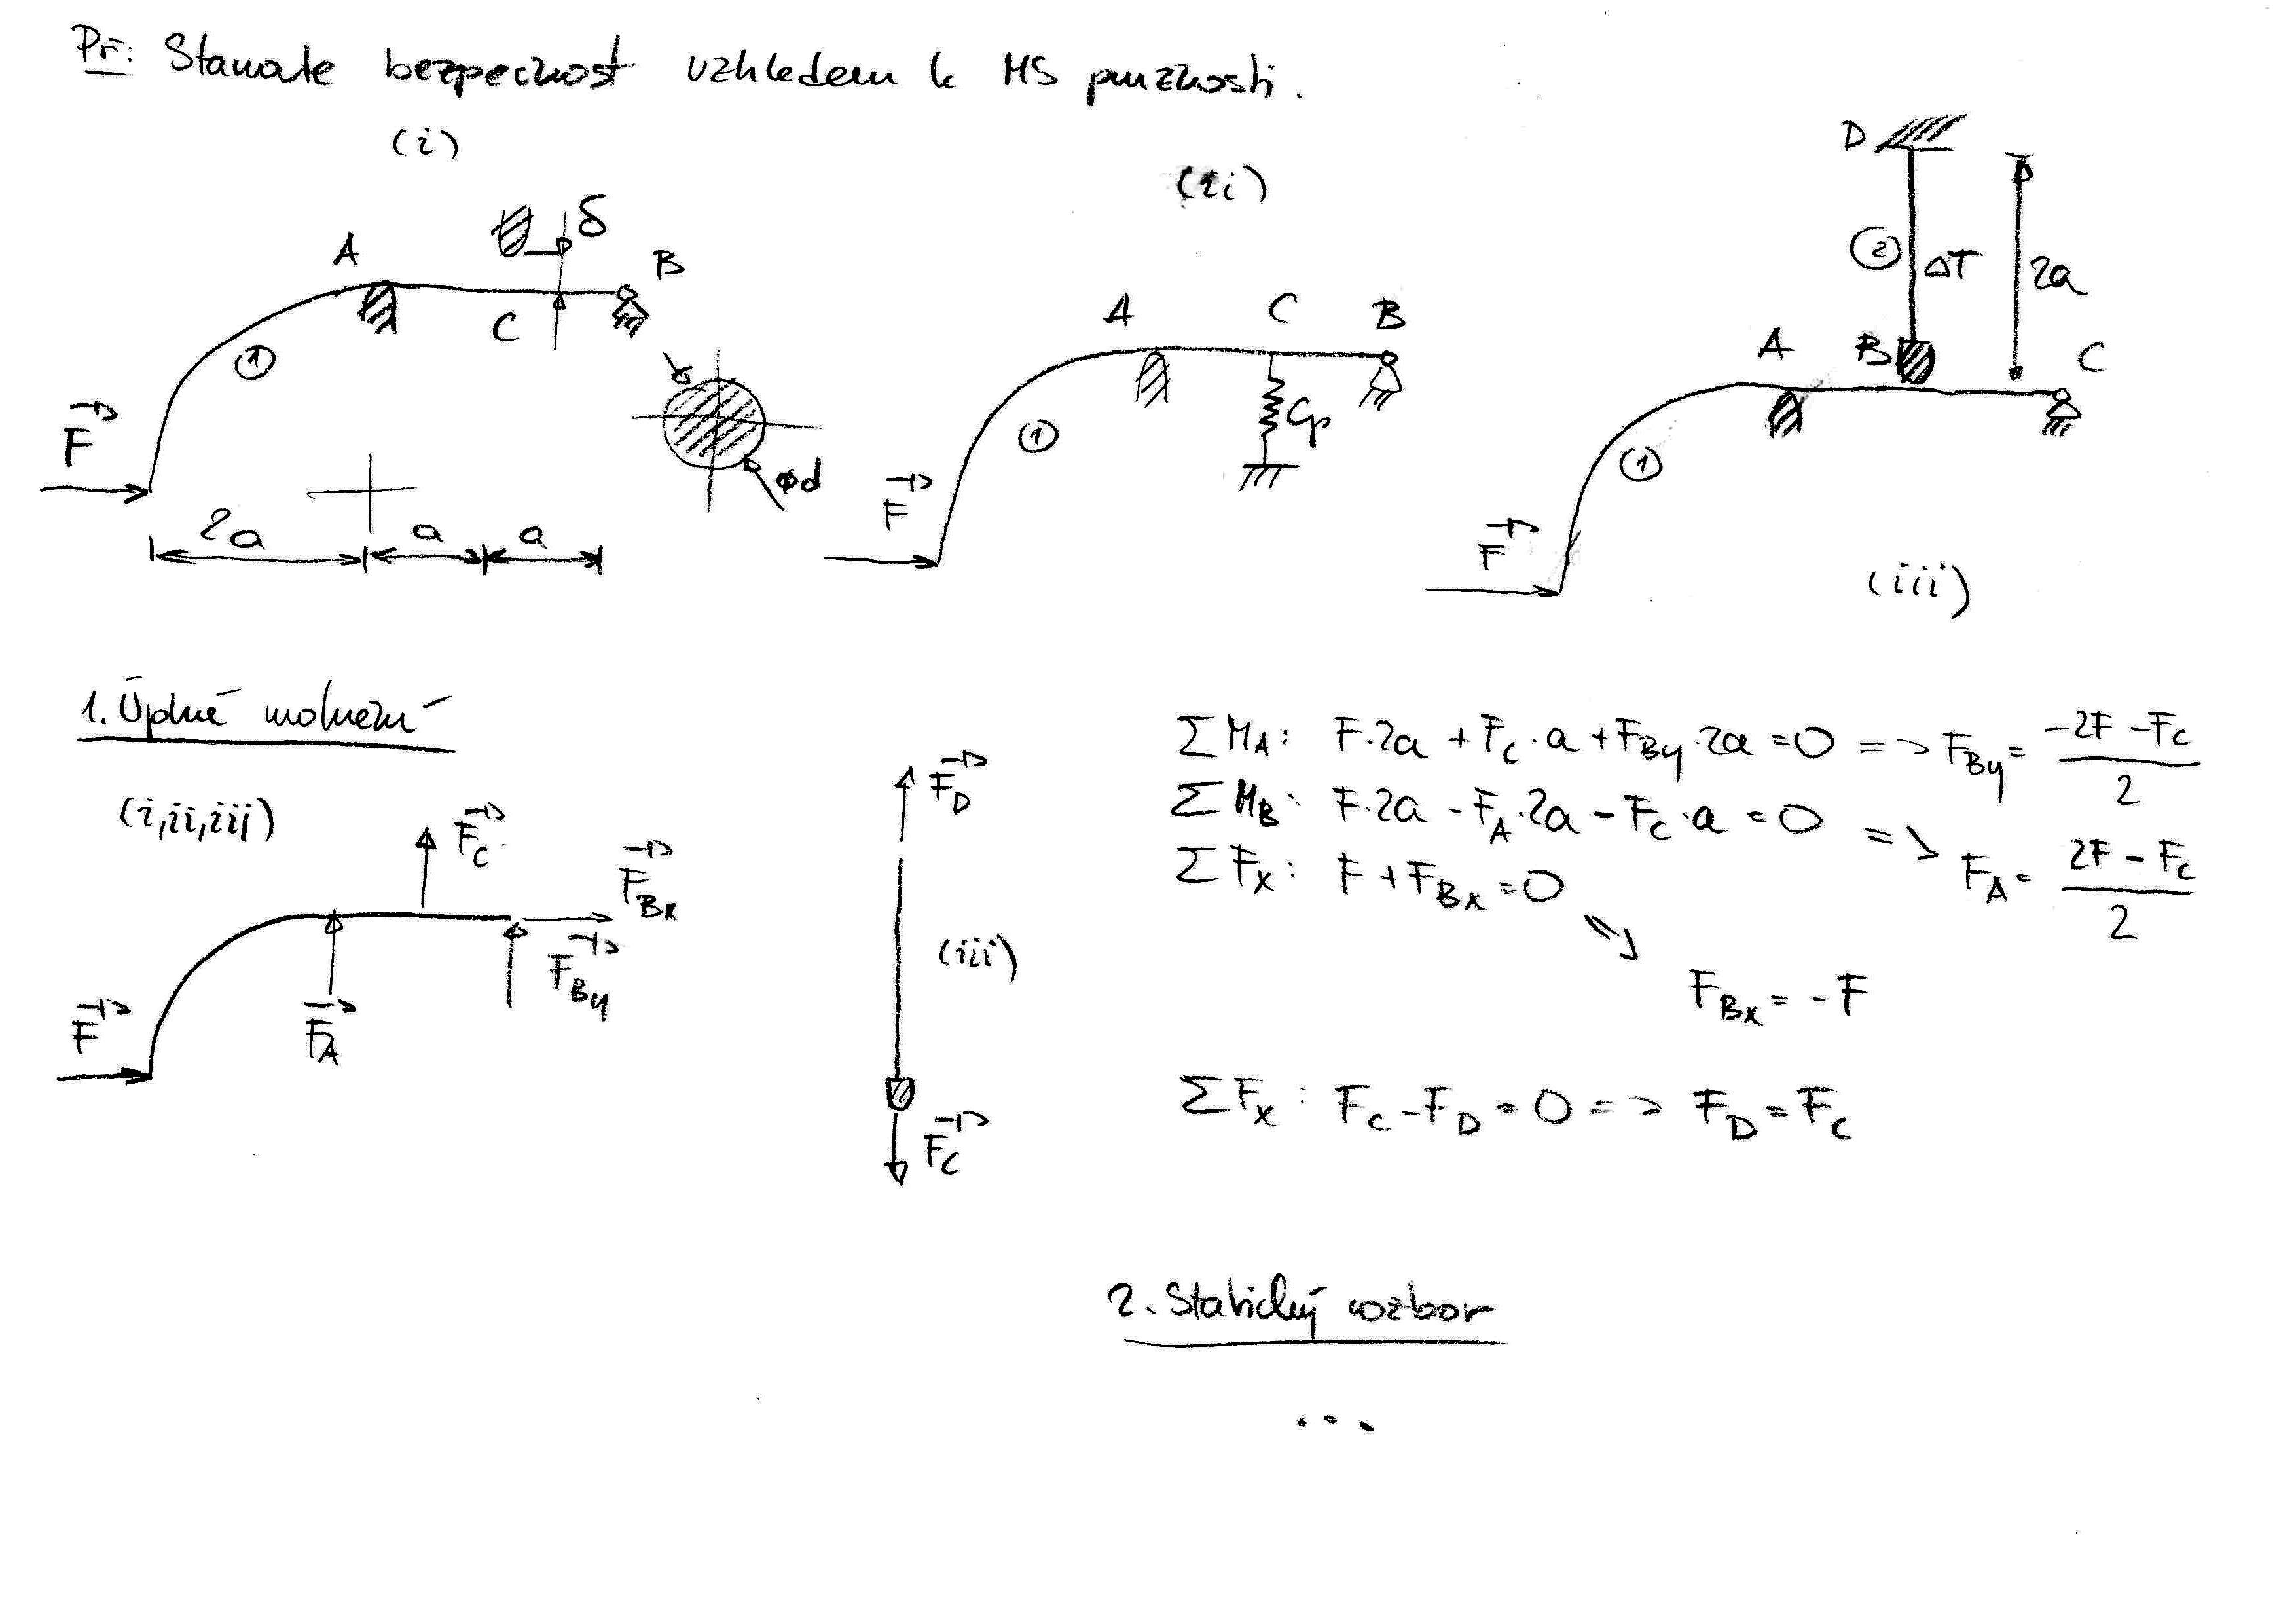 Př: Stanovte bezpečnost vzhledem k MS pružnosti.
(i)
(ii)
(iii)
A
δ
B
C
①
F
2a
a
a
ød
A
C
B
①
Cp
F
D
②
ΔT
2a
A
B
C
①
F
1. Úplné uvolnění
(i,ii,iii)
F
F_A
F_C
F_Bx
F_By
F_D
(iii)
F_C
ΣM_A: F·2a + F_C·a + F_By·2a = 0 => F_By = (-2F - F_C)/2
ΣM_B: F·2a - F_A·2a - F_C·a = 0 => F_A = (2F - F_C)/2
ΣF_x: F + F_Bx = 0
F_Bx = -F
ΣF_x: F_C - F_D = 0 => F_D = F_C
2. Statický rozbor
...